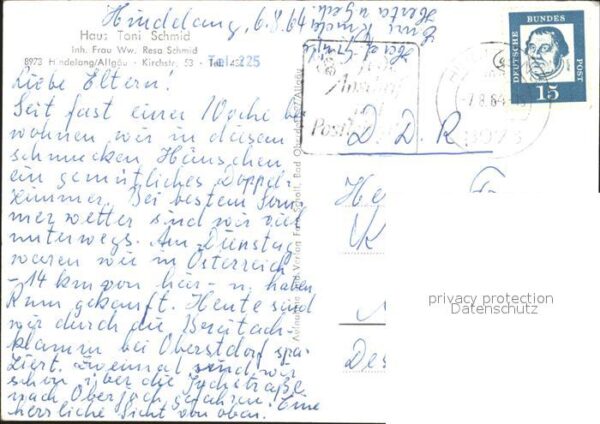 Hindelang, 6.8.64
Haus Toni Schmid
Inh. Frau Ww. Resa Schmid
8973 Hindelang/Allgäu - Kirchstr. 53 - Tel. 43
Tel. 225
Liebe Eltern!
Seit fast einer Woche be-
wohnen wir in diesem
schmucken Häuschen
ein gemütliches Doppel-
zimmer. Bei bestem Som-
merwetter sind wir viel
unterwegs. Am Dienstag
waren wir in Österreich
-14 km von hier- u. haben
Rum gekauft. Heute sind
wir durch die Breitach-
klamm bei Oberstdorf spa-
ziert. Zweimal sind wir
schon über die Jochstraße
nach Oberjoch gefahren. Eine
herrliche Sicht von oben.
Herzl. Grüße
DEUTSCHE
BUNDES
POST
15
-7.8.64
8973
D. D. R.
privacy protection
Datenschutz